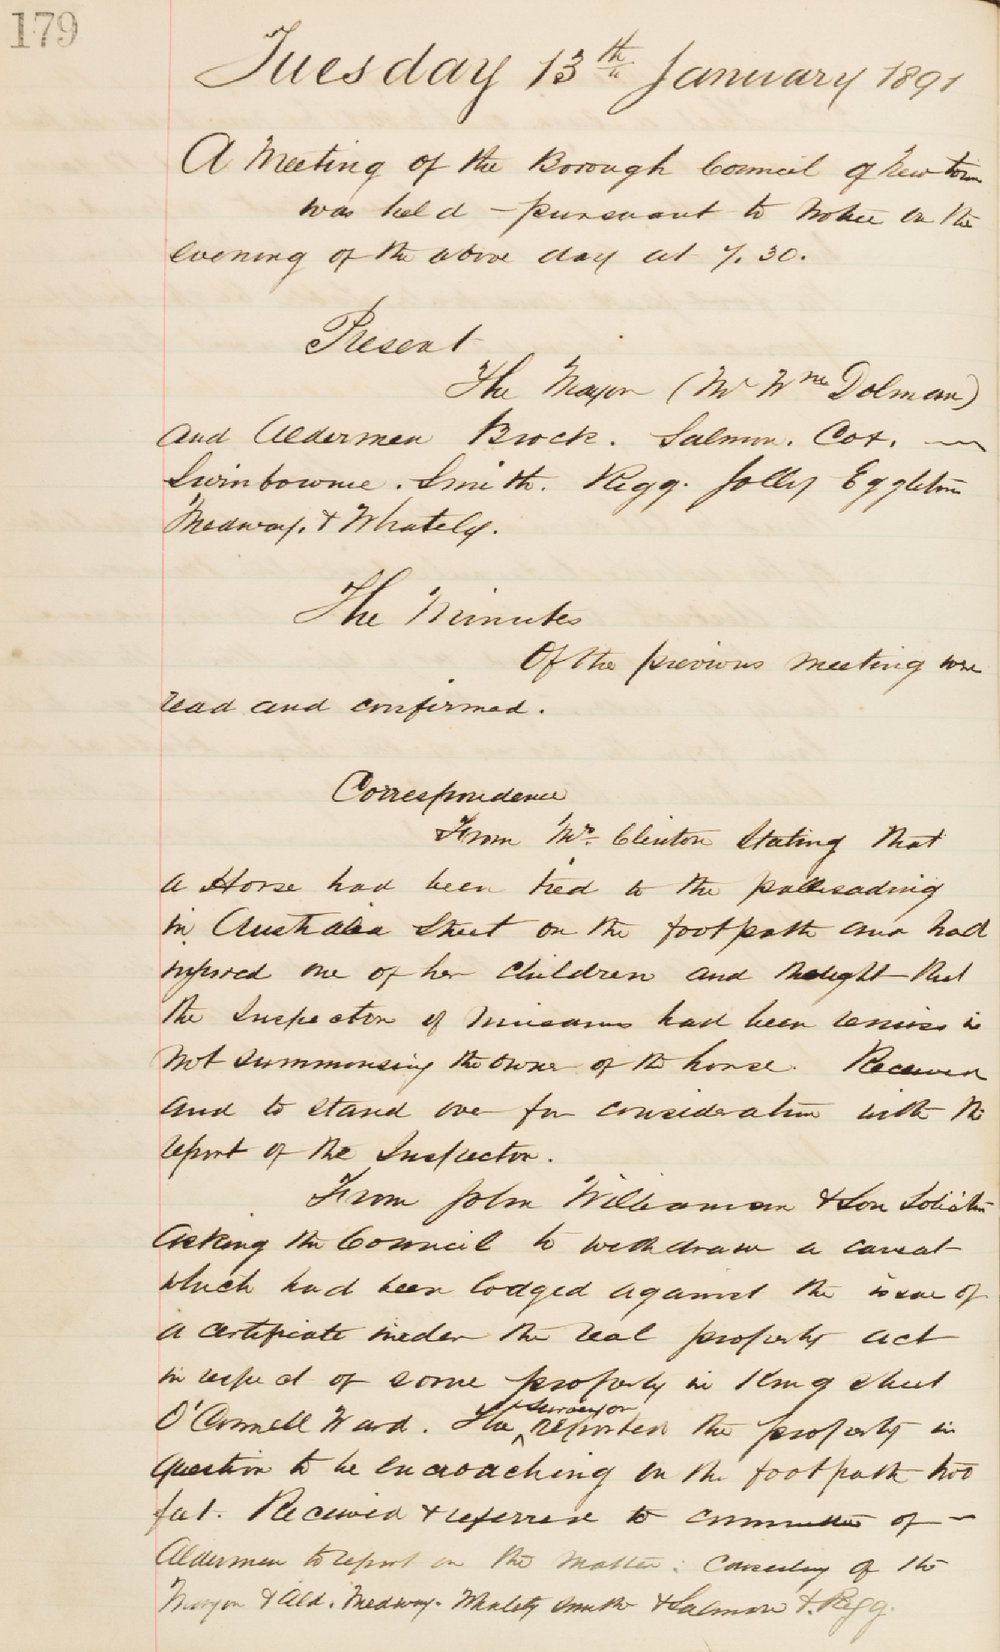 179
Tuesday 13th January 1891
A Meeting of the Borough Council of Newtown
was held - pursuant to notice on the
evening of the above day at 7.30.
Present
The Mayor (Mr Wm Dolman)
and Aldermen Brock. Salmon. Cox. —
Swinbourne. Smith. Rigg. Jolly Eggleton
Medway. & Whately.
The Minutes
Of the previous meeting were
read and confirmed.
Correspondence
From Mrs. Clinton Stating that
a Horse had been tied to the pallisading
in Australia Street on the footpath and had
injured one of her children and thought that
the Inspector of Nuisances had been remiss in
not summonsing the owner of the horse. Received
and to stand over for consideration with the
report of the Inspector.
From John Williamson & Son Solicitors
Asking the Council to withdraw a caveat
which had been lodged against the issue of
a certificate under the real property act
in respect of some property in King Street
O'Connell Ward. The surveyor reported the property in
question to be encroaching on the footpath two
feet. Received & referred to committee of —
Aldermen to report on the matter: Consisting of the
Mayor & Ald. Medway. Whately Smith & Salmon & Rigg.